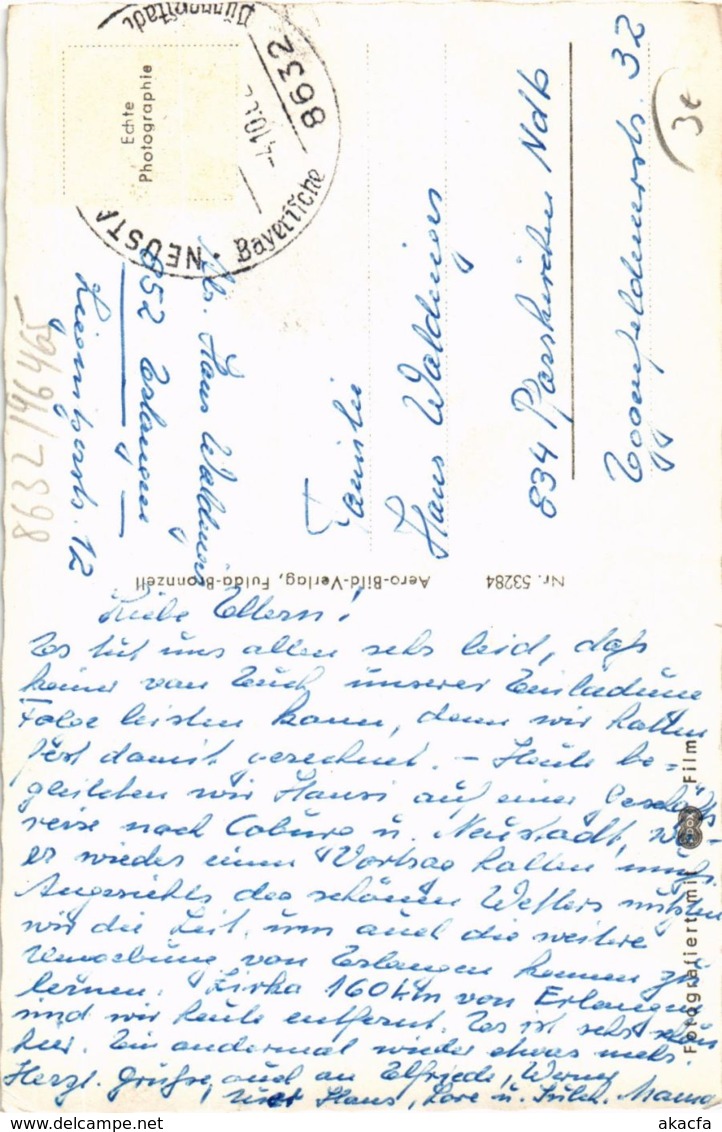 Liebe Eltern!
Es tut uns allen sehr leid, daß
keiner von Euch unserer Einladung
Folge leisten kann, denn wir hatten
fest damit gerechnet. – Heute be=
gleiteten wir Hansi auf einer Geschäfts-
reise nach Coburg u. Neustadt, wo
er wieder einen Vortrag halten muß.
Angesichts des schönen Wetters nützen
wir die Zeit, um auch die weitere
Umgebung von Erlangen kennen zu
lernen. Zirka 160 km von Erlangen
sind wir heute entfernt. Es ist sehr schön
hier. Ein andermal wieder etwas mehr.
Herzl. Grüße, auch an Elfriede, Werner
Hans, Lore u. Mama
Abs. Hans Waldmeier
852 Erlangen
12
Familie
Hans Waldmeier
834 Pfarrkirchen Ndb
Eggenfeldnerstr. 32
8632/1964 65
3€
Echte
Photographie
8632 NEUSTA
Bayerische
-4.10.
Aero-Bild-Verlag, Fulda-Bronnzell
Nr. 53284
Fotografiert mit
Film
www.delcampe.net
akacfa